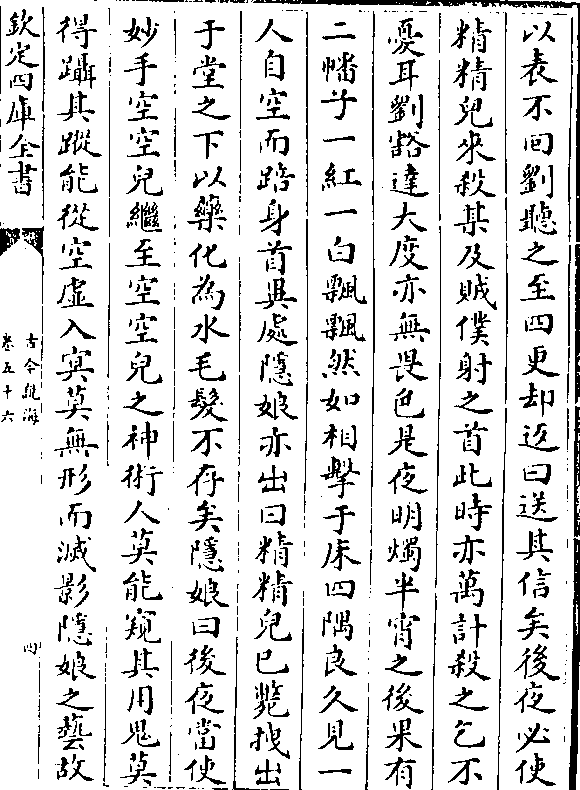 以表不囘劉聽之至四更却返曰送其信矣後夜必使
精精兒來殺某及賊僕射之首此時亦萬計殺之乞不
憂耳劉豁達大度亦無畏色是夜明燭半宵之後果有
二幡子一紅一白飄飄然如相擊于床四隅良久見一
人自空而踣身首異處隱娘亦出曰精精兒已斃拽出
于堂之下以藥化為水毛髮不存矣隱娘曰後夜當使
妙手空空兒繼至空空兒之神術人莫能窺其用鬼莫
得躡其蹤能從空虛入冥莫無形而滅影隱娘之藝故
欽定四庫全書
古今說海
卷五十六
四